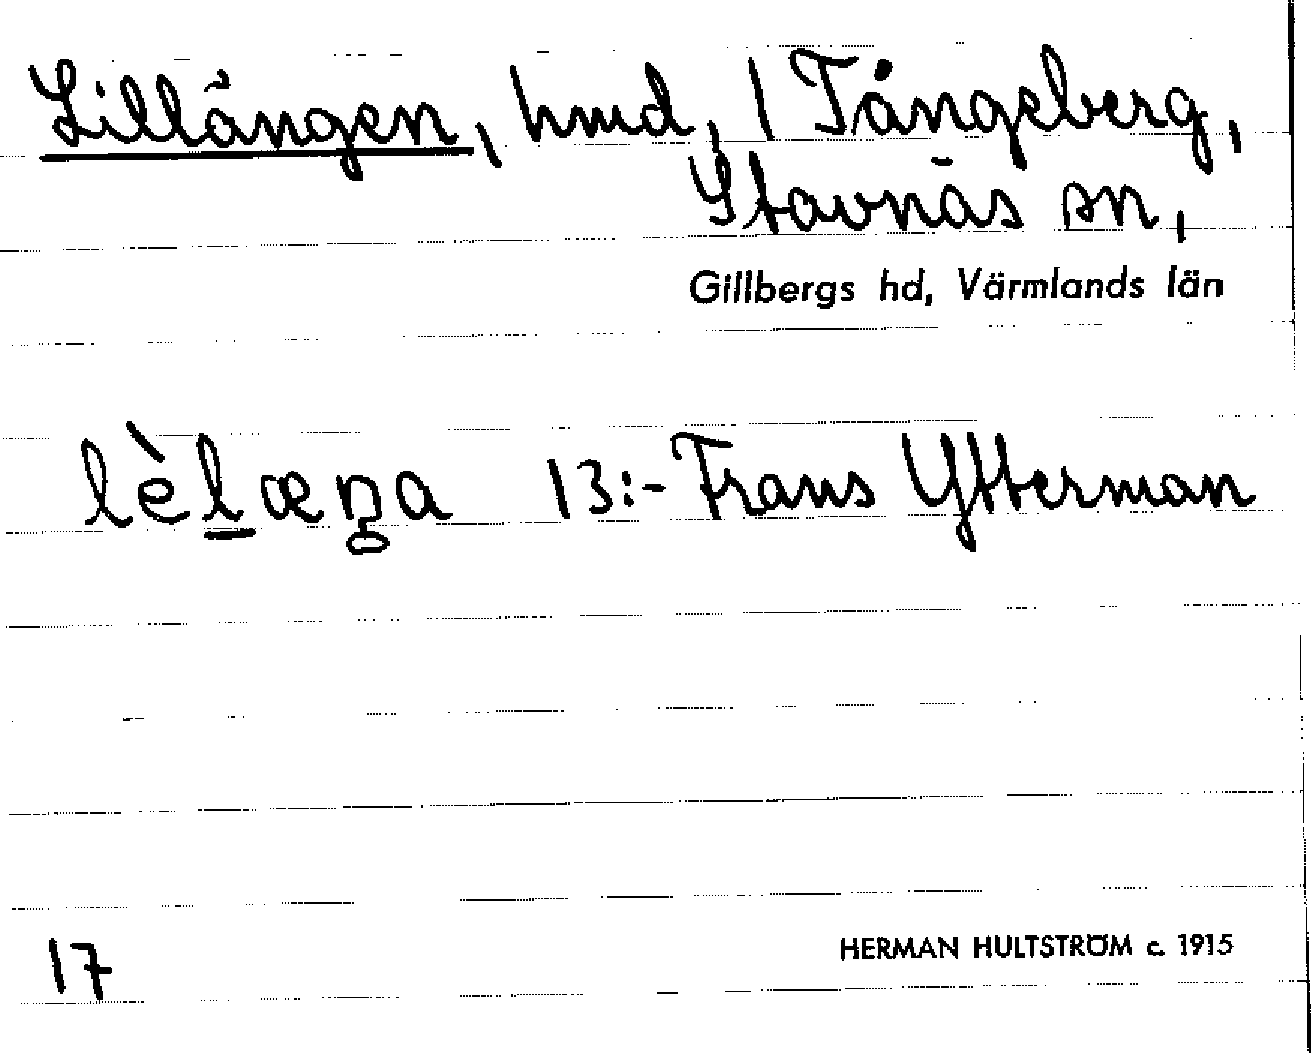 Lillängen, hmd, 1 Tångeberg,
Stavnäs sn,
Gillbergs hd, Värmlands län
lèlæŋa 13:- Frans Ytterman
17
HERMAN HULTSTRÖM c. 1915